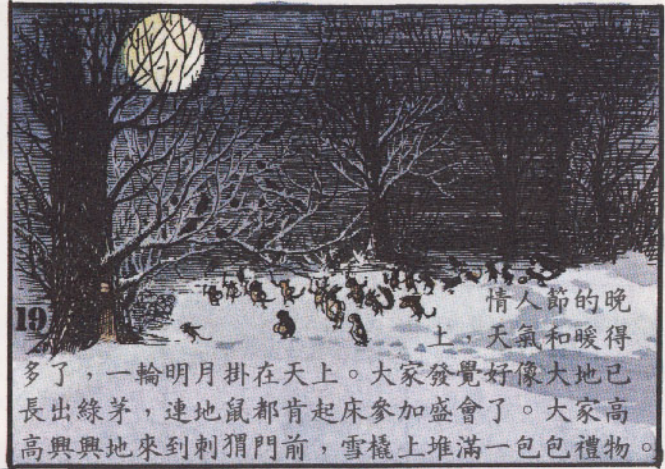 19
情人節的晚
上，天氣和暖得
多了，一輪明月掛在天上。大家發覺好像大地已
長出綠茅，連地鼠都肯起床參加盛會了。大家高
高興興地來到刺猬門前，雪橇上堆滿一包包禮物。